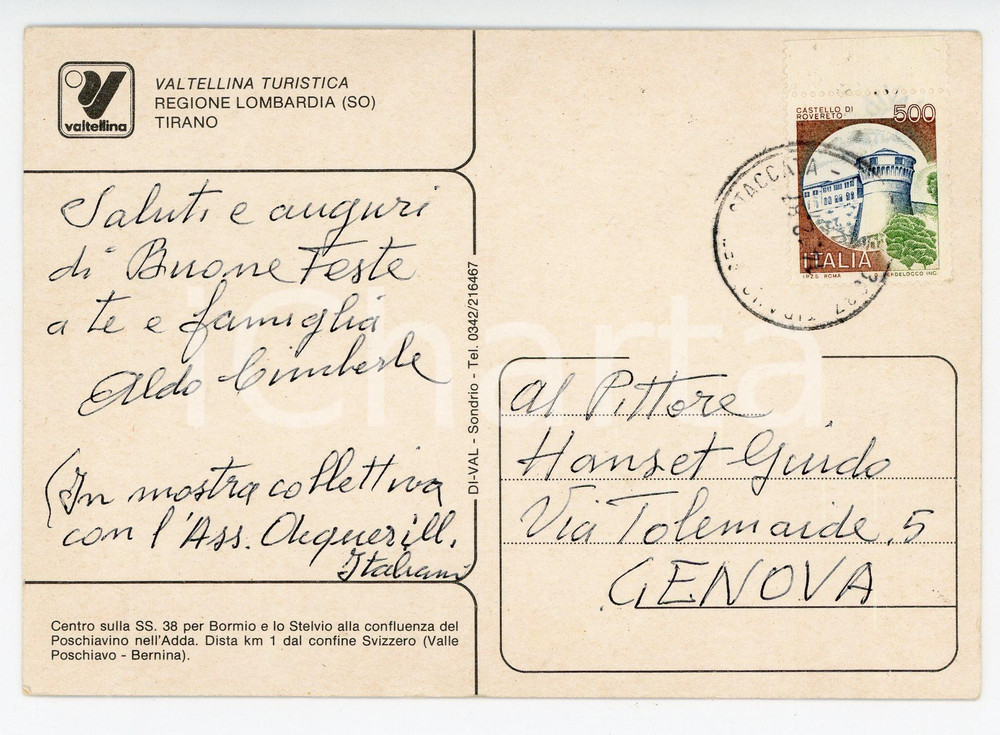 valtellina
VALTELLINA TURISTICA
REGIONE LOMBARDIA (SO)
TIRANO
CASTELLO DI
ROVERETO
500
ITALIA
I.P.Z.S. ROMA
STACCATA
Saluti e auguri
di Buone Feste
a te e famiglia
Aldo Cimberle
(In mostra collettiva
con l'Ass. Acquerill.
Italiani
DI-VAL - Sondrio - Tel. 0342/216467
Al Pittore
Hanset Guido
Via Tolemaide, 5
GENOVA
Centro sulla SS. 38 per Bormio e lo Stelvio alla confluenza del
Poschiavino nell'Adda. Dista km 1 dal confine Svizzero (Valle
Poschiavo - Bernina).
iCharta